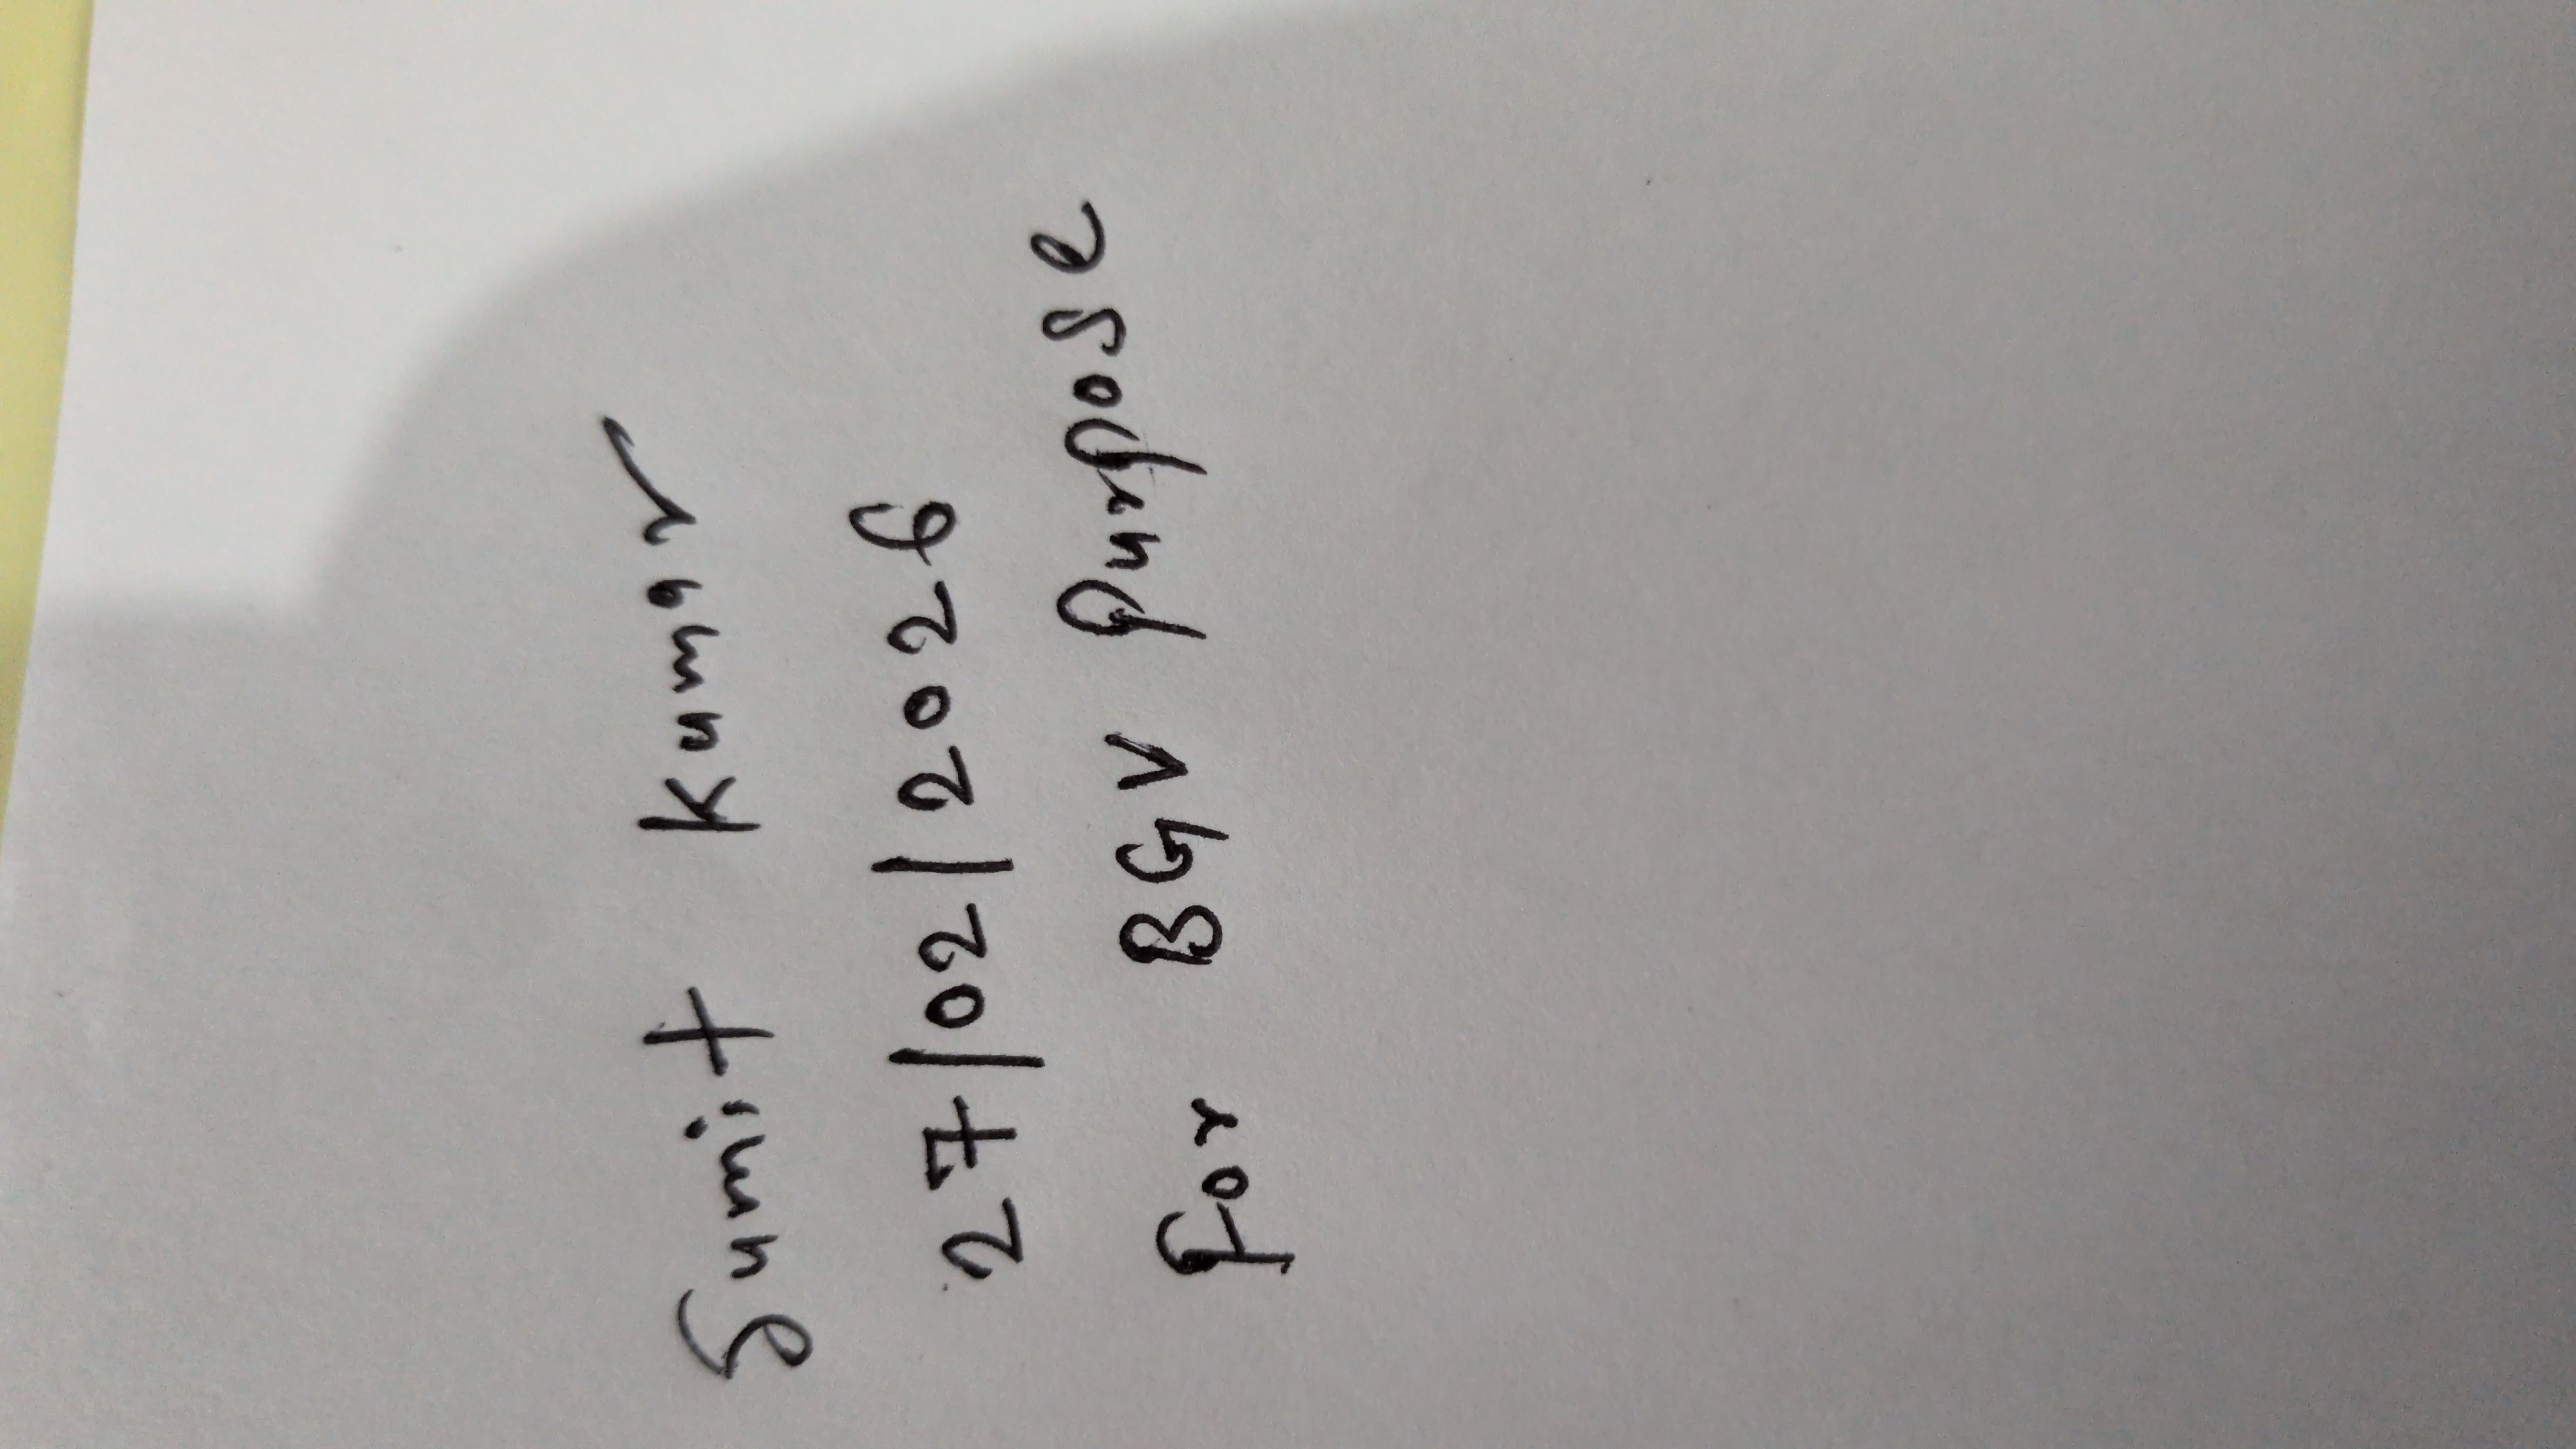 Sumit Kumar
27/02/2026
For BGV Purpose